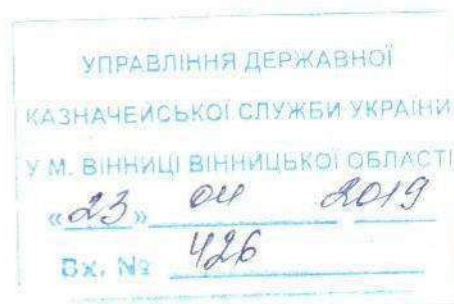 УПРАВЛІННЯ ДЕРЖАВНОЇ
КАЗНАЧЕЙСЬКОЇ СЛУЖБИ УКРАЇНИ
У М. ВІННИЦІ ВІННИЦЬКОЇ ОБЛАСТІ
«23» 04 2019
Вх. № 426